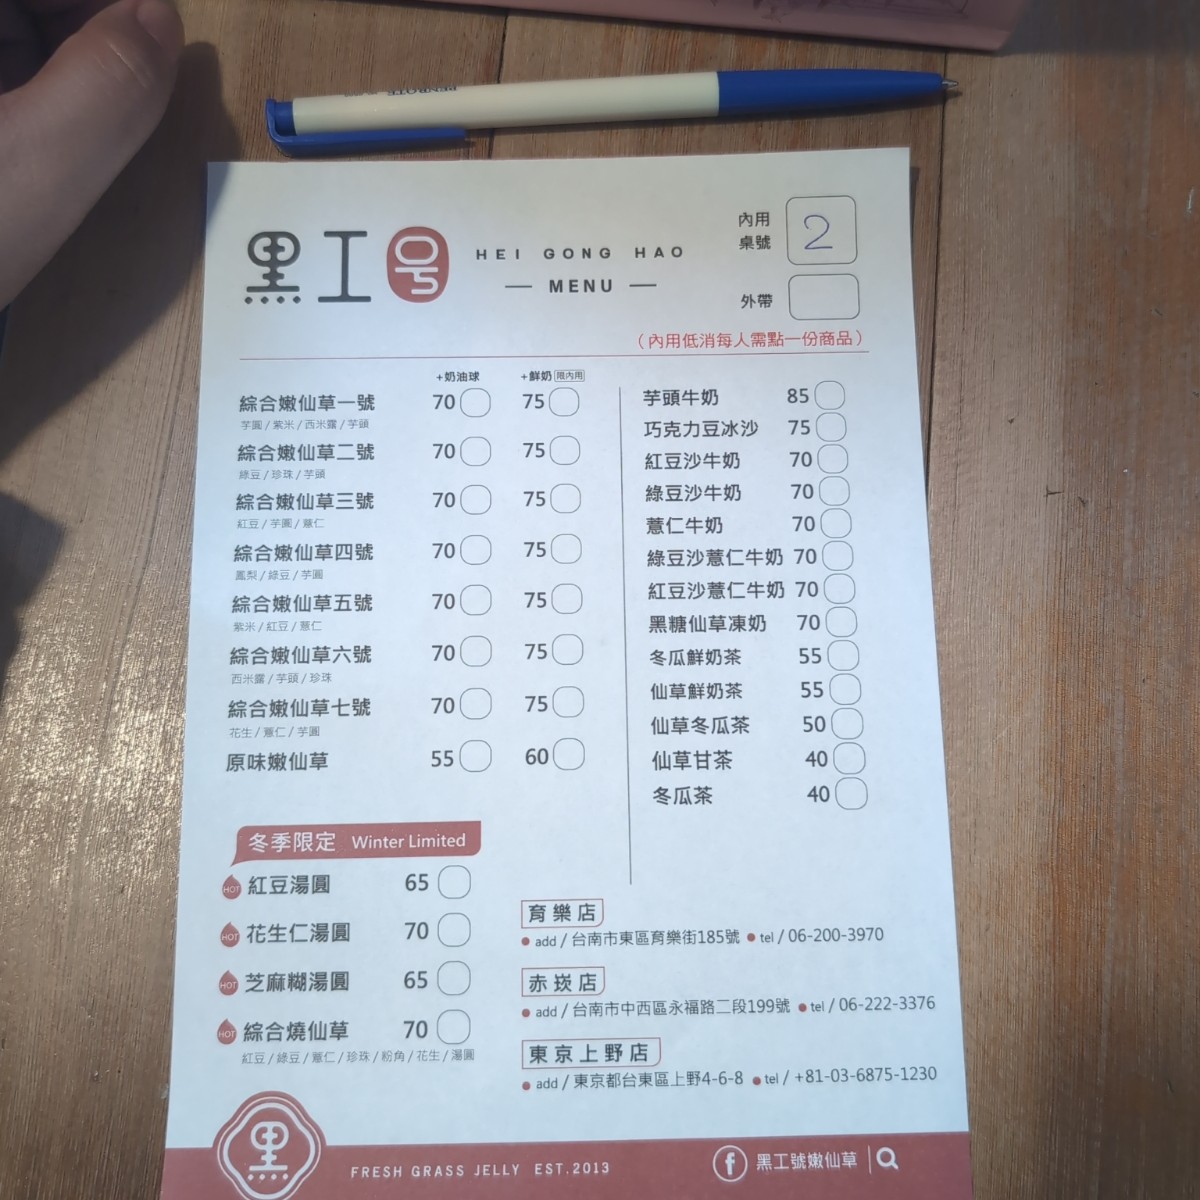 黑工号
HEI GONG HAO
MENU
內用
桌號
2
外帶
(內用低消每人需點一份商品)
+奶油球 +鮮奶 限內用
綜合嫩仙草一號 70 75
芋圓/紫米/西米露/芋頭
綜合嫩仙草二號 70 75
綠豆/珍珠/芋頭
綜合嫩仙草三號 70 75
紅豆/芋圓/薏仁
綜合嫩仙草四號 70 75
鳳梨/綠豆/芋圓
綜合嫩仙草五號 70 75
紫米/紅豆/薏仁
綜合嫩仙草六號 70 75
西米露/芋頭/珍珠
綜合嫩仙草七號 70 75
花生/薏仁/芋圓
原味嫩仙草 55 60
芋頭牛奶 85
巧克力豆冰沙 75
紅豆沙牛奶 70
綠豆沙牛奶 70
薏仁牛奶 70
綠豆沙薏仁牛奶 70
紅豆沙薏仁牛奶 70
黑糖仙草凍奶 70
冬瓜鮮奶茶 55
仙草鮮奶茶 55
仙草冬瓜茶 50
仙草甘茶 40
冬瓜茶 40
冬季限定 Winter Limited
HOT 紅豆湯圓 65
HOT 花生仁湯圓 70
HOT 芝麻糊湯圓 65
HOT 綜合燒仙草 70
紅豆/綠豆/薏仁/珍珠/粉角/花生/湯圓
育樂店
add / 台南市東區育樂街185號 tel / 06-200-3970
赤崁店
add / 台南市中西區永福路二段199號 tel / 06-222-3376
東京上野店
add / 東京都台東區上野4-6-8 tel / +81-03-6875-1230
黑
FRESH GRASS JELLY EST.2013
f 黑工號嫩仙草